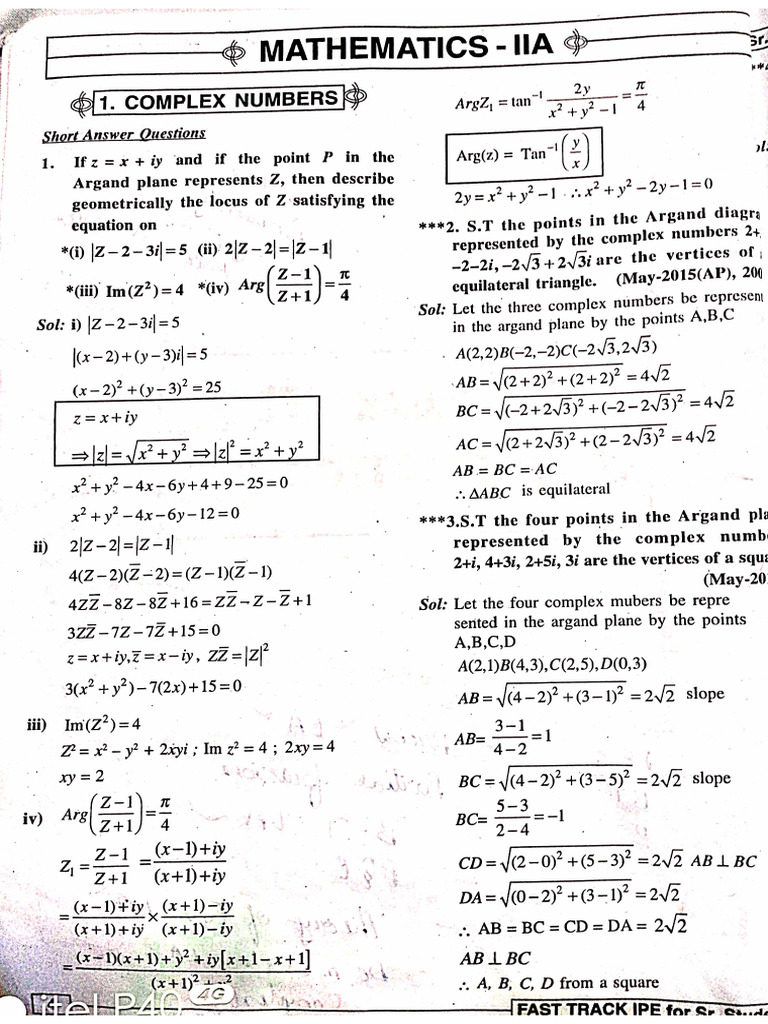 MATHEMATICS - IIA
1. COMPLEX NUMBERS
Short Answer Questions
1. If z = x + iy and if the point P in the
Argand plane represents Z, then describe
geometrically the locus of Z satisfying the
equation on
*(i) |Z−2−3i|=5 (ii) 2|Z−2|=|Z−1|
*(iii) Im(Z²)=4 *(iv) Arg((Z−1)/(Z+1))=π/4
Sol: i) |Z−2−3i|=5
|(x−2)+(y−3)i|=5
(x−2)²+(y−3)²=25
z=x+iy
⇒|z|=√(x²+y²)⇒|z|²=x²+y²
x²+y²−4x−6y+4+9−25=0
x²+y²−4x−6y−12=0
ii) 2|Z−2|=|Z−1|
4(Z−2)(Z̅−2)=(Z−1)(Z̅−1)
4ZZ̅−8Z−8Z̅+16=ZZ̅−Z−Z̅+1
3ZZ̅−7Z−7Z̅+15=0
z=x+iy,z̅=x−iy, ZZ̅=|Z|²
3(x²+y²)−7(2x)+15=0
iii) Im(Z²)=4
Z²= x² − y² + 2xyi ; Im z² = 4 ; 2xy = 4
xy = 2
iv) Arg((Z−1)/(Z+1))=π/4
Z₁=(Z−1)/(Z+1)=((x−1)+iy)/((x+1)+iy)
=((x−1)+iy)/((x+1)+iy)×((x+1)−iy)/((x+1)−iy)
=((x−1)(x+1)+y²+iy[x+1−x+1])/((x+1)²+y²)
ArgZ₁=tan⁻¹ 2y/(x²+y²−1)=π/4
Arg(z) = Tan⁻¹(y/x)
2y=x²+y²−1 ∴x²+y²−2y−1=0
***2. S.T the points in the Argand diagra
represented by the complex numbers 2+
−2−2i, −2√3+2√3i are the vertices of
equilateral triangle. (May-2015(AP), 200
Sol: Let the three complex numbers be represent
in the argand plane by the points A,B,C
A(2,2)B(−2,−2)C(−2√3,2√3)
AB=√((2+2)²+(2+2)²)=4√2
BC=√((−2+2√3)²+(−2−2√3)²)=4√2
AC=√((2+2√3)²+(2−2√3)²)=4√2
AB = BC = AC
∴ΔABC is equilateral
***3.S.T the four points in the Argand pla
represented by the complex numb
2+i, 4+3i, 2+5i, 3i are the vertices of a squa
(May-20
Sol: Let the four complex mubers be repre
sented in the argand plane by the points
A,B,C,D
A(2,1)B(4,3),C(2,5),D(0,3)
AB=√((4−2)²+(3−1)²)=2√2 slope
AB=(3−1)/(4−2)=1
BC=√((4−2)²+(3−5)²)=2√2 slope
BC=(5−3)/(2−4)=−1
CD=√((2−0)²+(5−3)²)=2√2 AB⊥BC
DA=√((0−2)²+(3−1)²)=2√2
∴ AB = BC = CD = DA = 2√2
AB⊥BC
∴ A, B, C, D from a square
FAST TRACK IPE for Sr. Stude
itel P40 4G